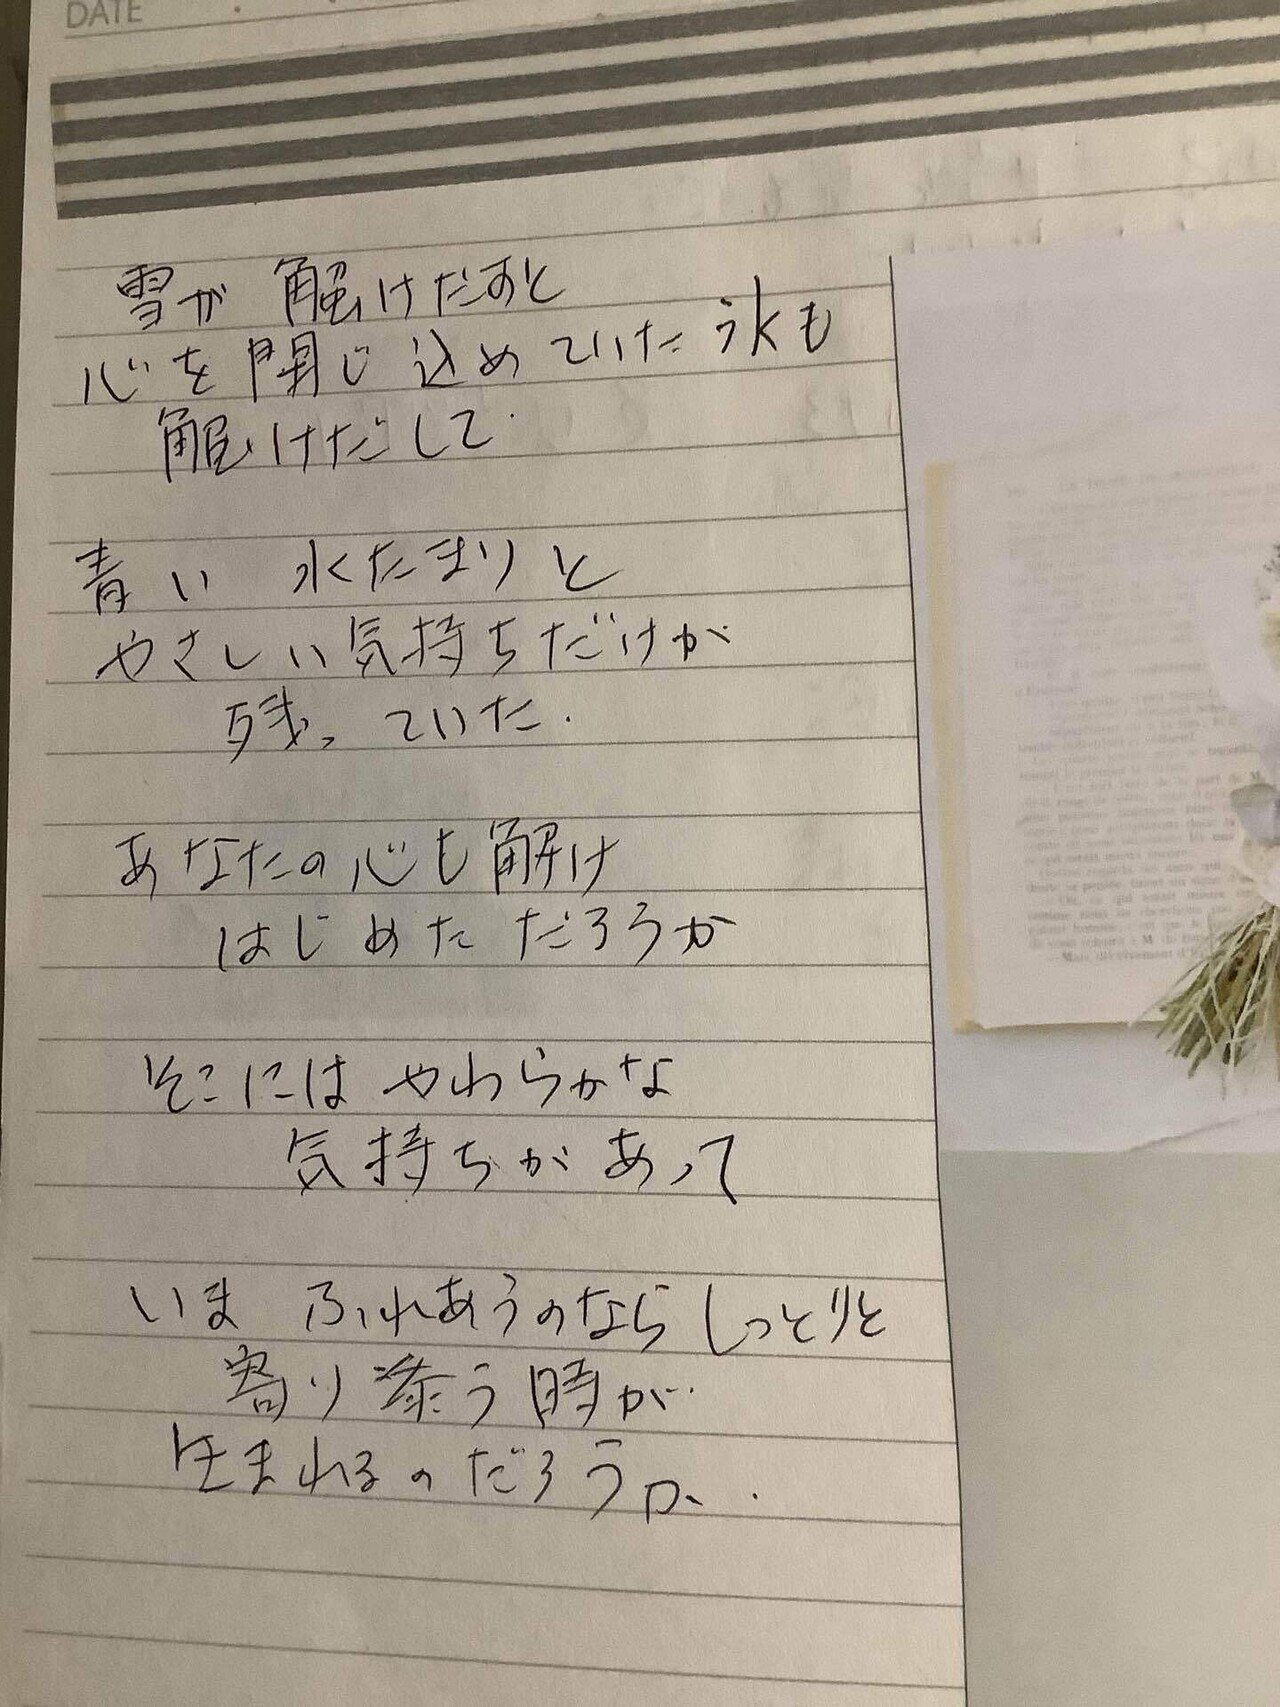 DATE
雪が 解けだすと
心を閉じ込めていた氷も
解けだして.
青い 水たまりと
やさしい気持ちだけが
残っていた.
あなたの心も解け
はじめた だろうか
そこには やわらかな
気持ちが あって
いま ふれあうのなら しっとりと
寄り添う時が
生まれるのだろうか.